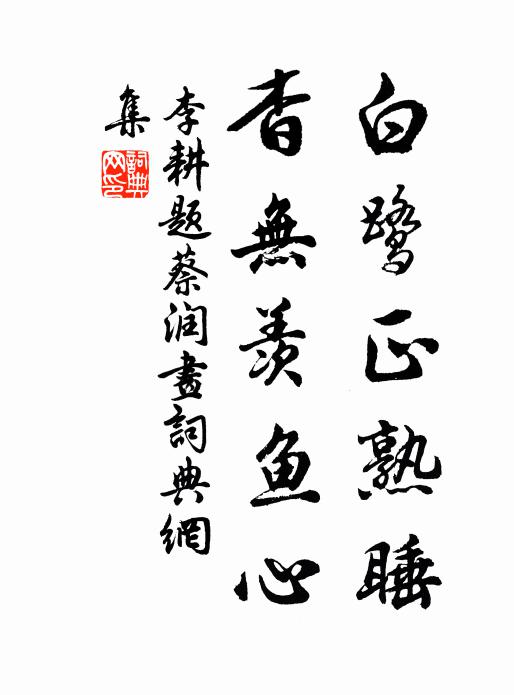 白鷺正熟睡
杳無羨魚心
李耕題蔡润畫詞典網
集
詞典
网印